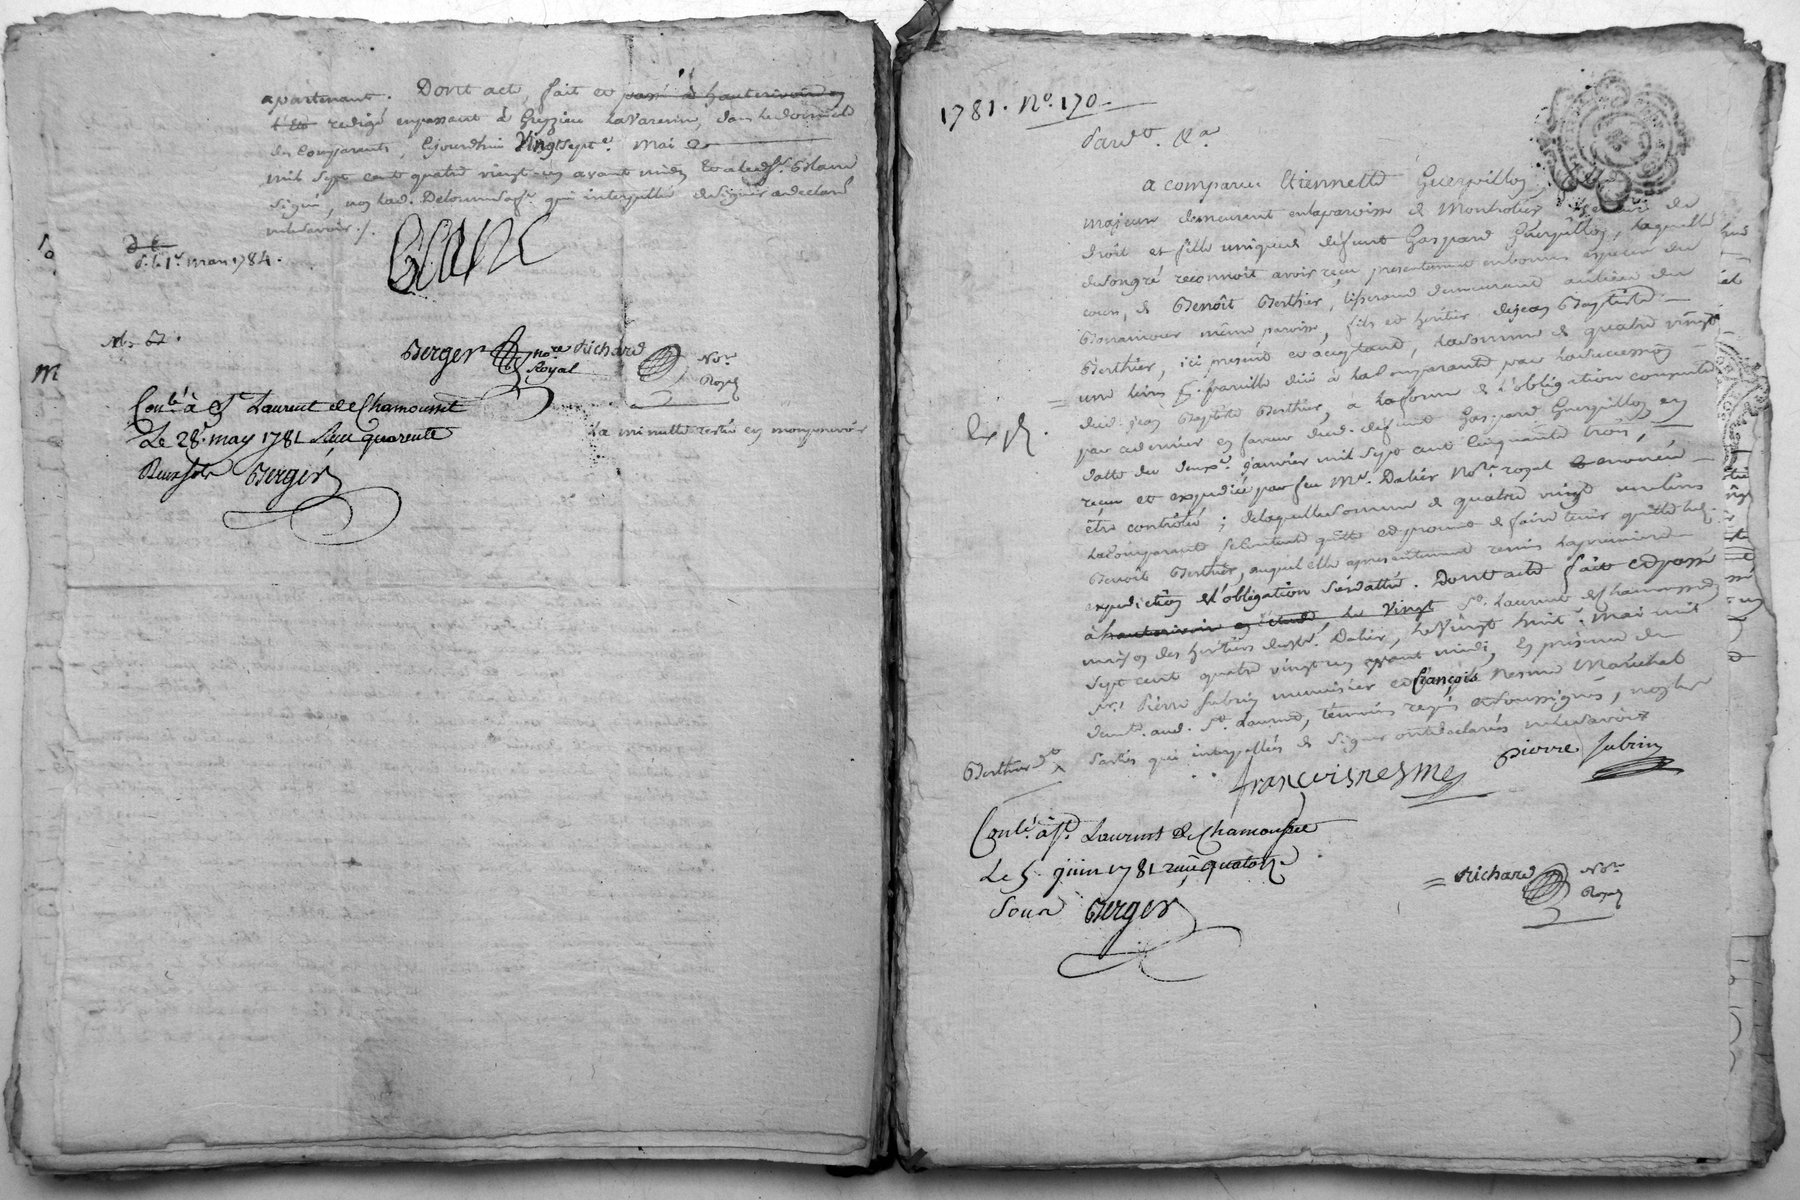 apartenant. Dont acte, fait et passé à hauterivoire en
redigé en passant à Grezieu Lavarenne, dans le domicile
des Comparants, cejourdhui Vingtsept.e mai
mil sept cent quatre vingt un avant midi
signé, non lad. qui interpellée de signer a declaré
ne le savoir ./.
d. le 1.r mars 1784.
Blanc
No. 67.
Berger no.re Royal
Richard No.re Royal
Con.lé à S.t Laurent de Chamousset
Le 28.e may 1781 Reçu quarente
Deux sols Berger
la minutte restée en mon pouvoir
1781. No. 170
Pard.t &.a
a comparue Etiennette Guerpillon,
majeure demeurent en la paroisse de Montrotier,
droit et fille unique de défunt Gaspard Guerpillon, laquelle
de son gré reconnoit avoir reçu presentement en bonnes especes du
cours, de Benoît Berthier, tisserand demeurant au lieu du
Bonamour même paroisse, fils et héritier de Jean Baptiste
Berthier, ici présent et aceptant, la somme de quatre vingt
une livre de pareille due à la Comparante par la sucession
dud. Jean Baptiste Berthier, à la forme de l'obligation consentie
par ce dernier en faveur dud. defunt Gaspard Guerpillon, en
datte du janvier mil sept cent Cinquante trois,
reçue et expediée par feu M.e Dalier No.re royal enoncée
être contrôlée ; de laquelle somme de quatre vingt une livre
la Comparante se contente quitte et promet de faire tenir quitte led.
Benoît Berthier, auquel elle a presentement remis la premiere
expedicion de l'obligation susdattée. Dont acte fait et passé
à hauterivoire en étude, le Vingt S.t Laurent de Chamousset
maison des héritiers dud. M.e Dalier, le Vingt huit.e mai mil
sept cent quatre vingt un avant midi, en présence de
S.r Pierre Subrin menuisier et françois Nesme Maréchal
dem.t aud. S.t Laurent, témoins requis et soussignés, non les
parties qui interpellées de signer ont declarés ne le savoir
Berthier d.t
françois nesme
pierre Subrin
Con.lé à S.t Laurent de Chamousset
Le 5. juin 1781 reçu quatorze
Sous Berger
Richard No.re Royal